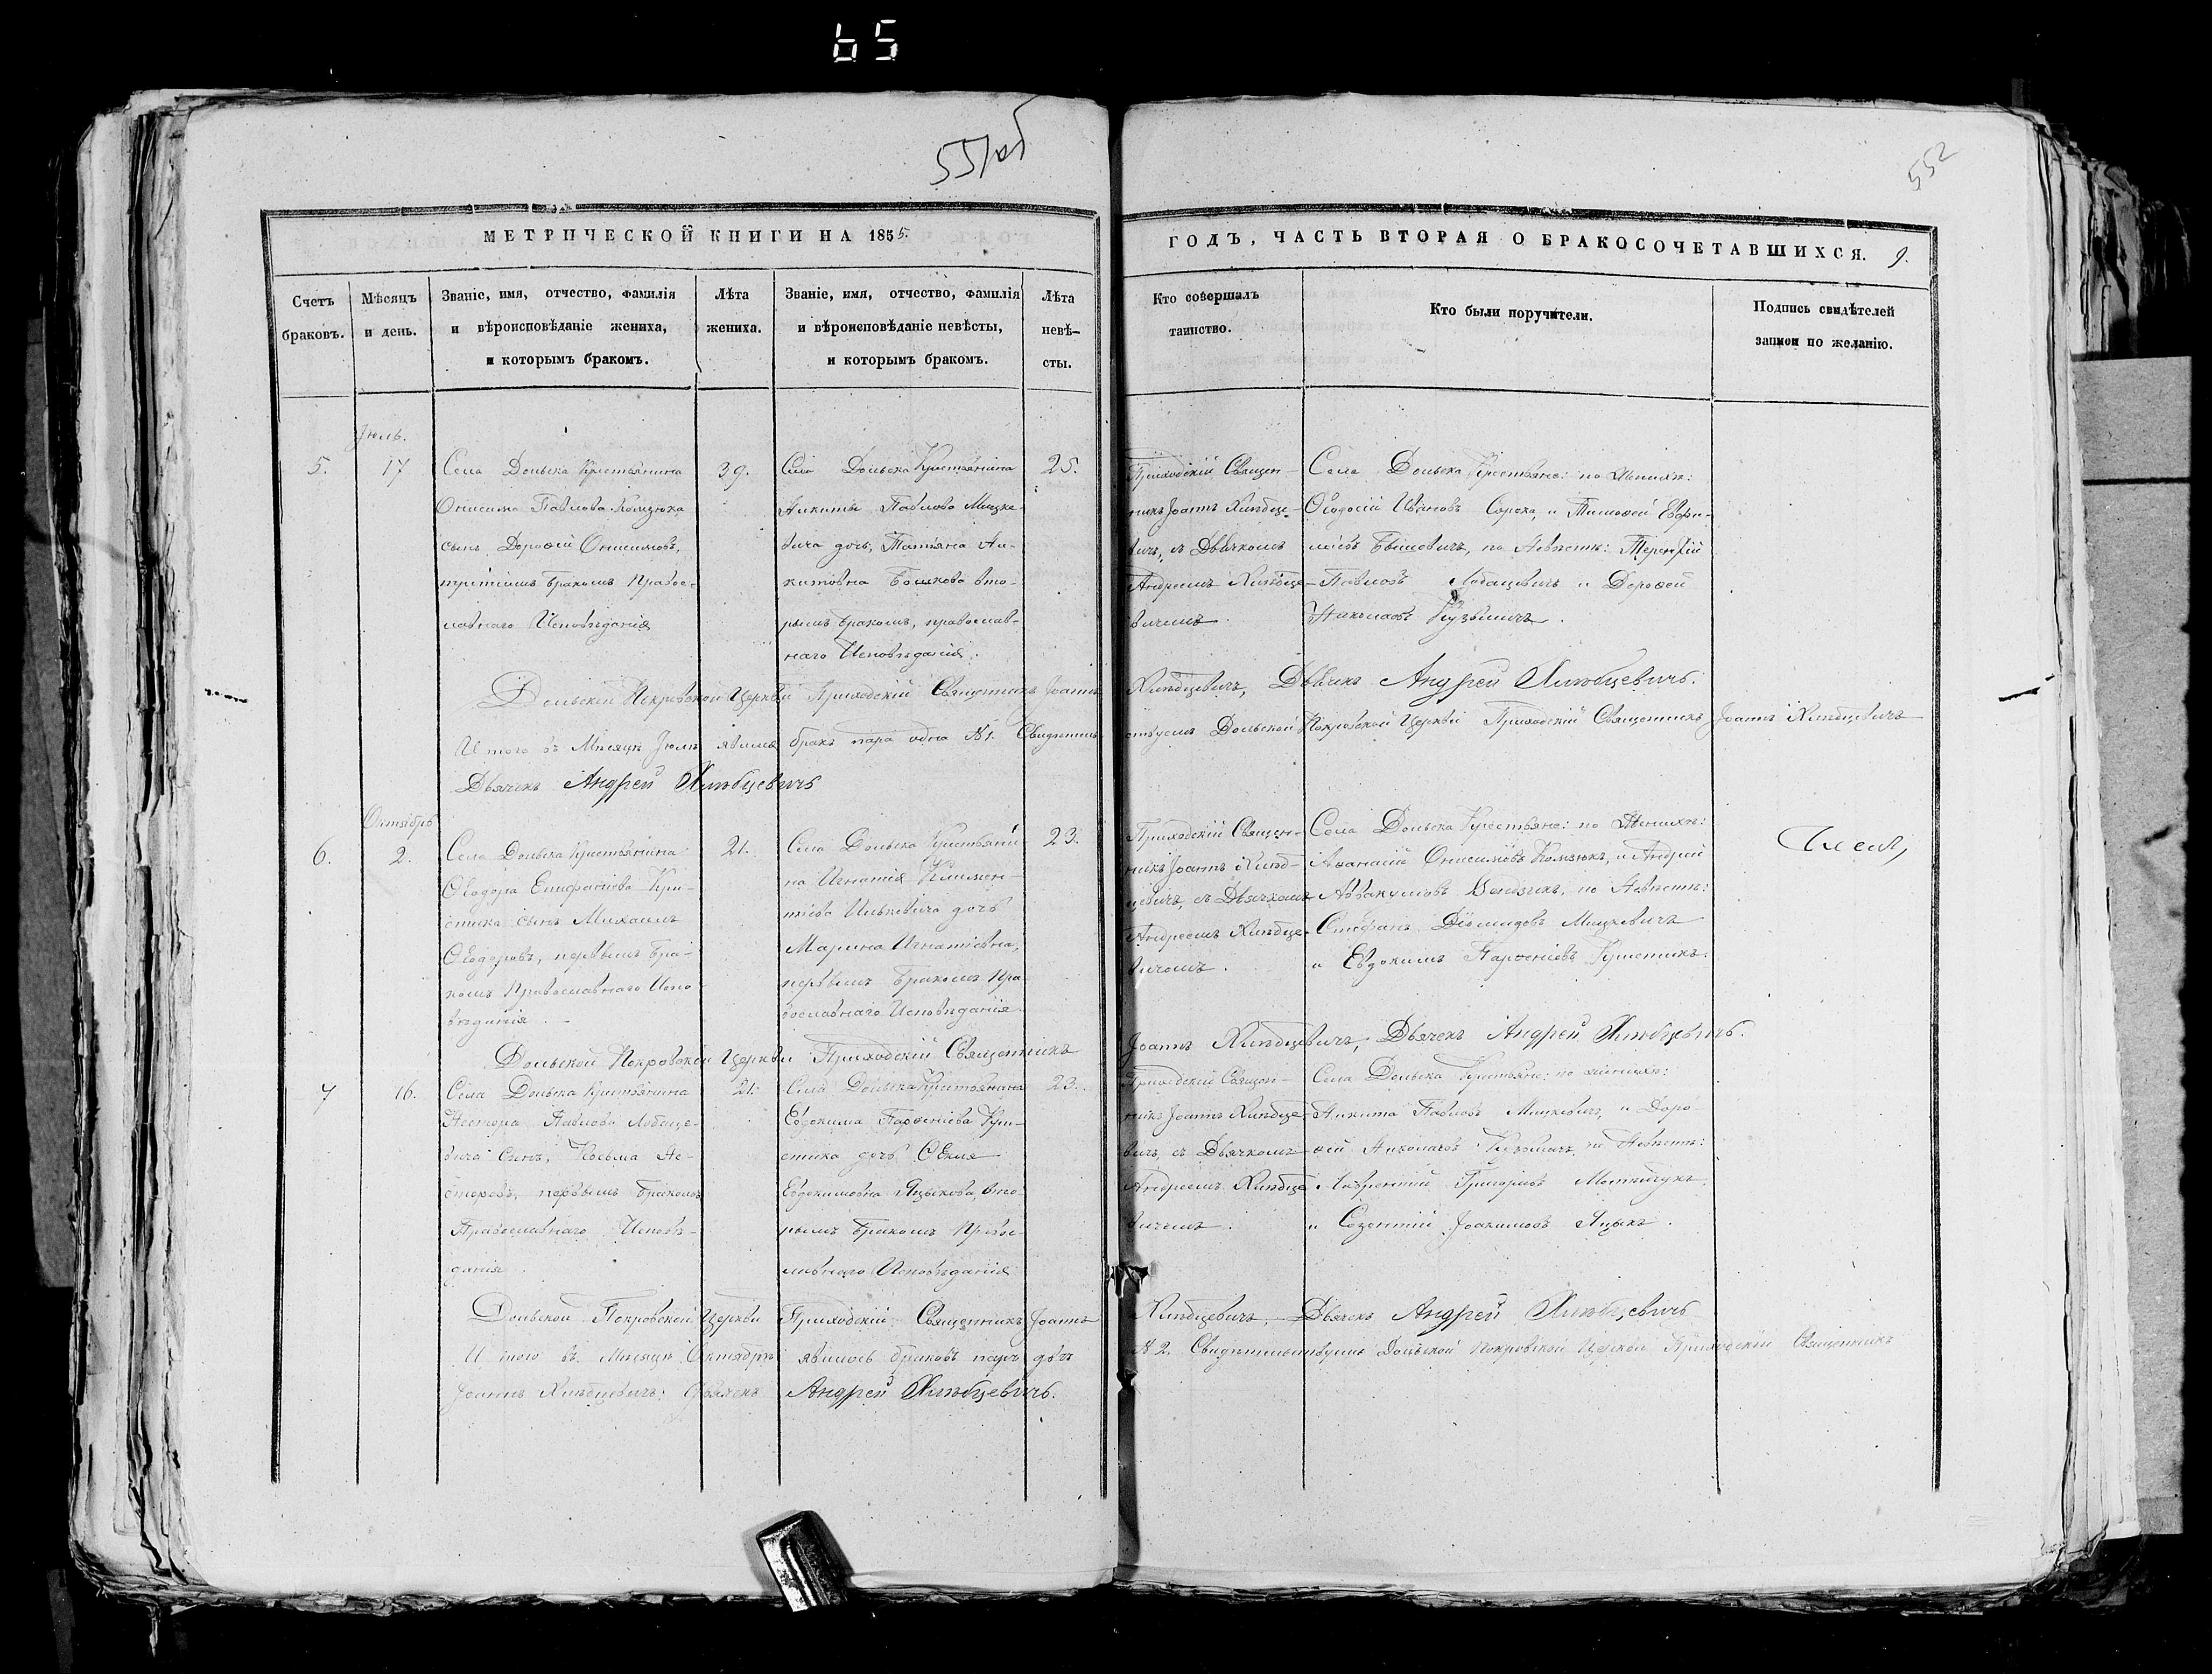 65
551об
552
МЕТРИЧЕСКОЙ КНИГИ НА 1855.
ГОДЪ, ЧАСТЬ ВТОРАЯ О БРАКОСОЧЕТАВШИХСЯ. 9.
Счетъ браковъ.
Мѣсяцъ и день.
Званіе, имя, отчество, фамилія
и вѣроисповѣданіе жениха,
и которымъ бракомъ.
Лѣта жениха.
Званіе, имя, отчество, фамилія
и вѣроисповѣданіе невѣсты,
и которымъ бракомъ.
Лѣта невѣ-
сты.
Кто совершалъ
таинство.
Кто были поручители.
Подпись свидѣтелей
записи по желанію.
Іюль.
5.
17
Села Дольска Крестьянина
Онисима Павлова Комзюка
сынъ Дороѳей Онисимовъ,
третіимъ бракомъ Правос-
лавнаго Исповѣданія
39.
Села Дольска Крестьянина
Никиты Павлова Мицке-
вича дочь, Татьяна Ни-
китовна Бошкова вто-
рымъ бракомъ, православ-
наго Исповѣданія.
25.
Приходскій Священ-
никъ Іоаннъ Хлѣбце-
вичъ, съ Дьячкомъ
Андреемъ Хлѣбце-
вичемъ.
Села Дольска Крестьяне: по Женихѣ:
Ѳеодосій Ивановъ Сорока, и Тимоѳей Евфи-
міевъ, по Невѣстѣ: Терентій
Павловъ Лобацевичъ и Дороѳей
Николаевъ Кузьмичъ.
Дольской Покровской Церкви Приходскій Священникъ Іоаннъ Хлѣбцевичъ, Дьячекъ Андрей Хлѣбцевичъ.
И того въ Мѣсяцѣ Іюлѣ явилась бракъ пара одна № 1. Свидѣтельствуемъ Дольской Покровской Церкви Приходскій Священникъ Іоаннъ Хлѣбцевичъ
Дьячекъ Андрей Хлѣбцевичъ
Октябрь
6.
2.
Села Дольска Крестьянина
Ѳеодора Епифаніева Кри-
стика сынъ Михаилъ
Ѳеодоровъ, первымъ бра-
комъ Православнаго Испо-
вѣданія.
21.
Села Дольска Крестьяни-
на Игнатія Климен-
тіева Илькевича дочь
Марина Игнатіевна,
первымъ бракомъ Пра-
вославнаго Исповѣданія
23.
Приходскій Священ-
никъ Іоаннъ Хлѣб-
цевичъ, съ Дьячкомъ
Андреемъ Хлѣбце-
вичемъ.
Села Дольска Крестьяне: по Женихѣ:
Аѳанасій Онисимовъ Комзюкъ, и Андрей
Аввакумовъ, по Невѣстѣ:
Стефанъ Діомидовъ Мицкевичъ
и Евдокимъ Парѳеніевъ Кристикъ.
Дольской Покровской Церкви Приходскій Священникъ Іоаннъ Хлѣбцевичъ, Дьячекъ Андрей Хлѣбцевичъ.
7
16.
Села Дольска Крестьянина
Нестора Павлова Лобаце-
вича Сынъ, Косьма Не-
сторовъ, первымъ бракомъ
Православнаго Исповѣ-
данія.
21.
Села Дольска Крестьянина
Евдокима Парѳеніева Кри-
стика дочь Ѳекла
Евдокимовна Яцыкова, вто-
рымъ бракомъ Право-
славнаго Исповѣданія
23.
Приходскій Священ-
никъ Іоаннъ Хлѣбце-
вичъ, съ Дьячкомъ
Андреемъ Хлѣбце-
вичемъ.
Села Дольска Крестьяне: по женихѣ:
Никита Павловъ Мицкевичъ, и Доро-
ѳей Николаевъ Кузьмичъ, по Невѣстѣ:
Лаврентій Григоріевъ
и Созонтій Іоакимовъ Яцыкъ.
Дольской Покровской Церкви Приходскій Священникъ Іоаннъ Хлѣбцевичъ, Дьячекъ Андрей Хлѣбцевичъ
И того въ Мѣсяцѣ Октябрѣ явилось браковъ паръ двѣ № 2. Свидѣтельствуемъ Дольской Покровской Церкви Приходскій Священникъ
Іоаннъ Хлѣбцевичъ: Дьячекъ Андрей Хлѣбцевичъ.